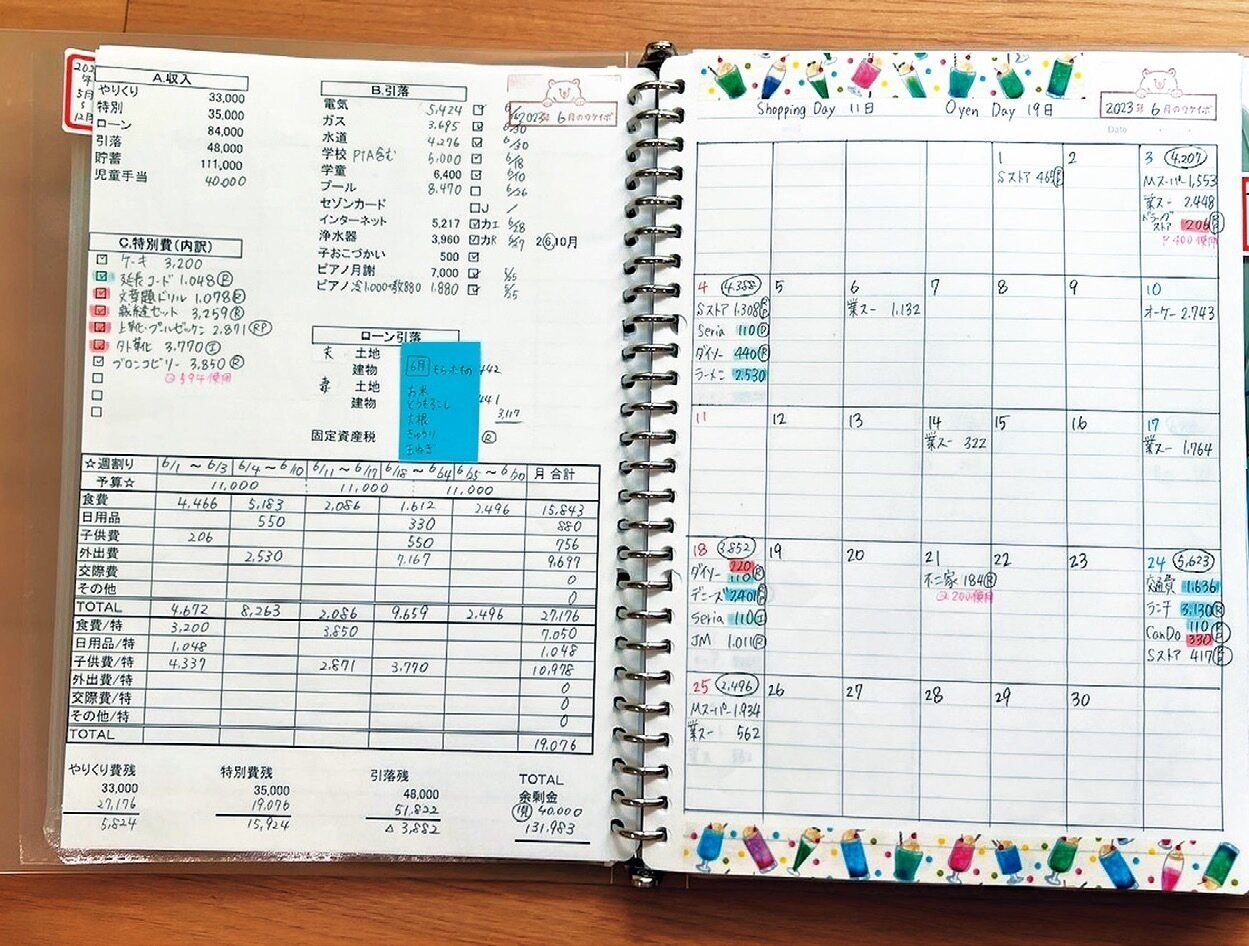 5月
12月
A.収入
やりくり 33,000
特別 35,000
ローン 84,000
引落 48,000
貯蓄 111,000
児童手当 40,000
C.特別費(内訳)
ケーキ 3,200
延長コード 1,048 R
文章題ドリル 1,078 R
裁縫セット 3,259 R
上靴・プールゼッケン 2,871 RP
外靴 3,770
ブロンコビリー 3,850 R
594使用
B.引落
電気 5,424
ガス 3,695 6/30
水道 4,276 6/30
学校 PTA含む 5,000 6/18
学童 6,400 6/10
プール 8,470 6/26
セゾンカード J /
インターネット 5,217 カエ 6/28
浄水器 3,960 カR 2 6,10月
子おこづかい 500
ピアノ月謝 7,000
ピアノ 1,000+教880 1,880
2023年 6月のワケイボ
ローン引落
夫 土地
建物 442
妻 土地
建物 441
3,117
固定資産税 R
6月 もらったもの
お米
とうもろこし
大根
きゅうり
玉ねぎ
☆週割り 6/1 ~ 6/3 6/4 ~ 6/10 6/11 ~ 6/17 6/18 ~ 6/24 6/25 ~ 6/30 月合計
予算☆ 11,000 11,000 11,000
食費 4,466 5,183 2,086 1,612 2,496 15,843
日用品 550 330 880
子供費 206 550 756
外出費 2,530 7,167 9,697
交際費 0
その他 0
TOTAL 4,672 8,263 2,086 9,659 2,496 27,176
食費/特 3,200 3,850 7,050
日用品/特 1,048 1,048
子供費/特 4,337 2,871 3,770 10,978
外出費/特 0
交際費/特 0
その他/特 0
TOTAL 19,076
やりくり費残 特別費残 引落残 TOTAL
余剰金
33,000 35,000 48,000 児 40,000
27,176 19,076 51,822 131,983
5,824 15,924 △ 3,882
Shopping Day 11日 Oyen Day 19日
2023年 6月のワケイボ
Date
1 2 3 4,207
Sストア 465
Mスーパー 1,553
業スー 2,448
ドラッグストア 206
P400使用
4 4,388 5 6 7 8 9 10
Sストア 1,308 業スー 1,132 オーケー 2,743
Seria 110
ダイソー 440
ラーメン 2,530
11 12 13 14 15 16 17
業スー 322 業スー 1,764
18 3,852 19 20 21 22 23 24 5,623
ダイソー 220 不二家 184 R 交通費 1,636
110 R 200使用
デニーズ 2,401 ランチ 3,130 R
Seria 110 110
CanDo 330
JM 1,011 R Sストア 417
25 2,496 26 27 28 29 30
Mスーパー 1,934
業スー 562